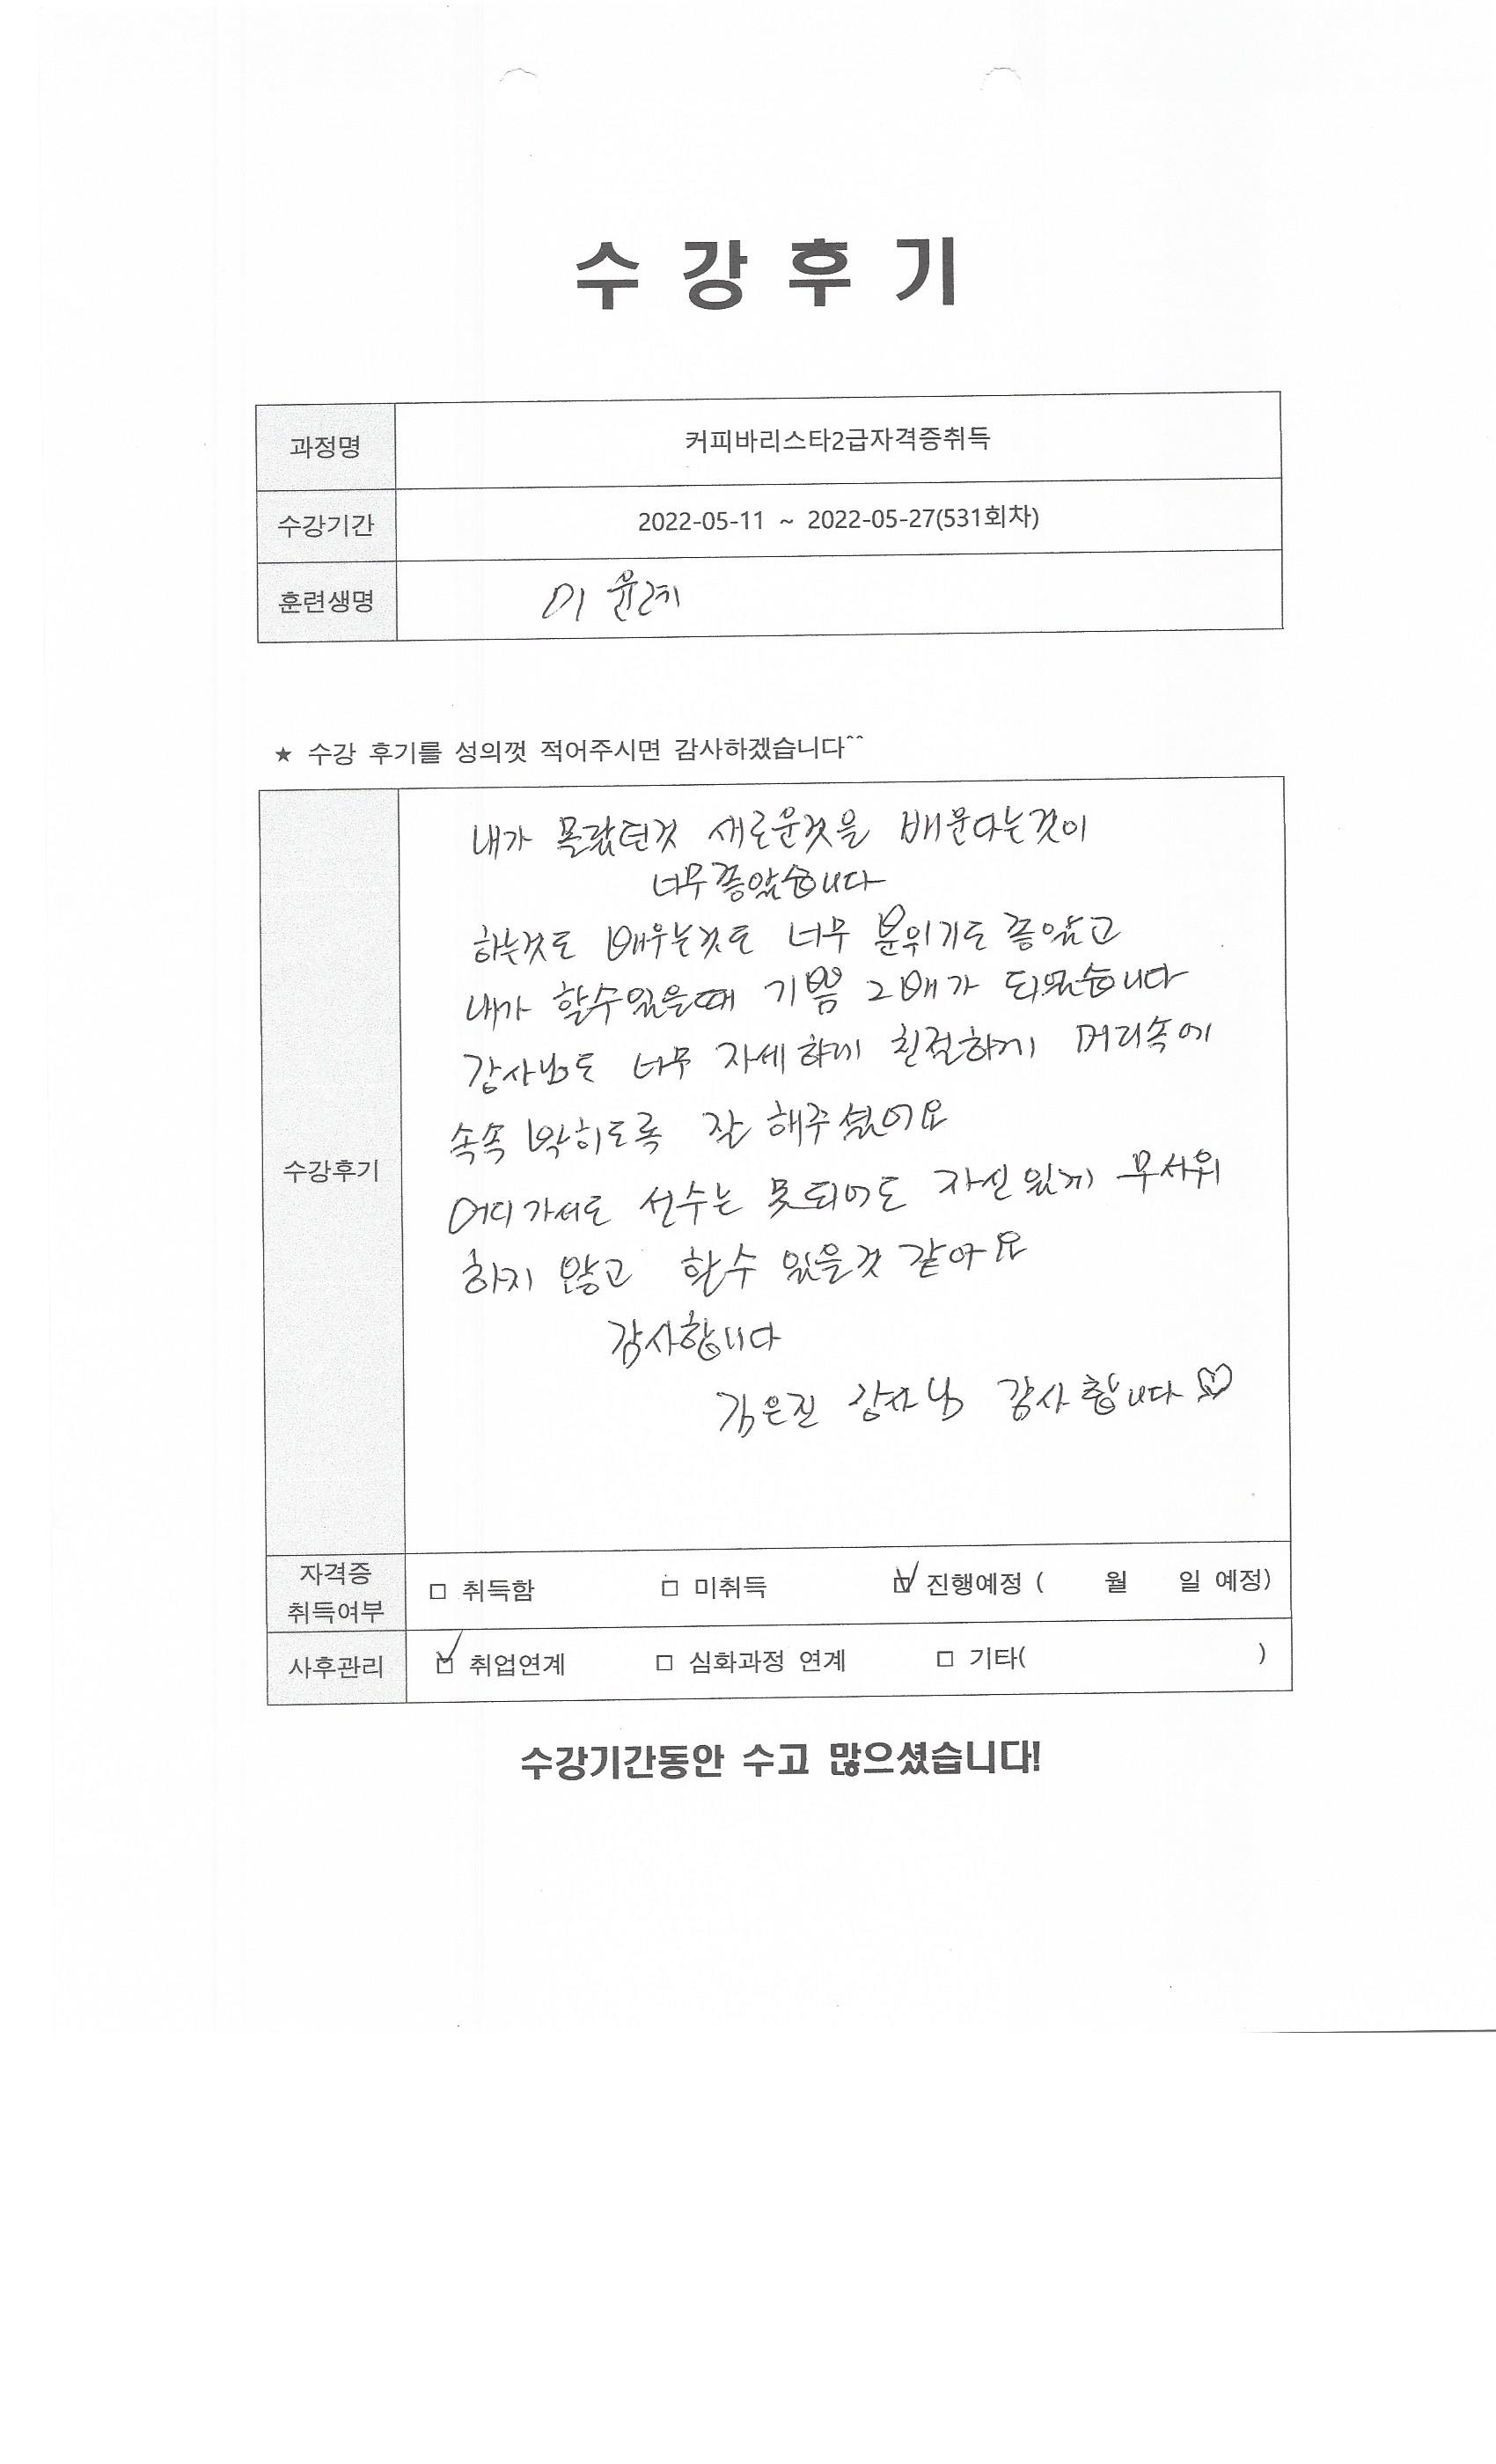 수강후기
과정명 커피바리스타2급자격증취득
수강기간 2022-05-11 ~ 2022-05-27(531회차)
훈련생명
★ 수강 후기를 성의껏 적어주시면 감사하겠습니다^^
수강후기
내가 몰랐던것 새로운것을 배운다는것이
너무좋았습니다
하는것도 배우는것도 너무 분위기도 좋았고
내가 할수있을때 기쁨 2배가 되었습니다
강사님도 너무 자세하게 친절하게 머리속에
속속 박히도록 잘 해주셨어요
어디가서도 선수는 못되어도 자신있게 무서워
하지 않고 할수 있을것 같아요
감사합니다
김은진 강사님 감사합니다♡
자격증
취득여부 □ 취득함 □ 미취득 ☑ 진행예정 ( 월 일 예정)
사후관리 ☑ 취업연계 □ 심화과정 연계 □ 기타( )
수강기간동안 수고 많으셨습니다!